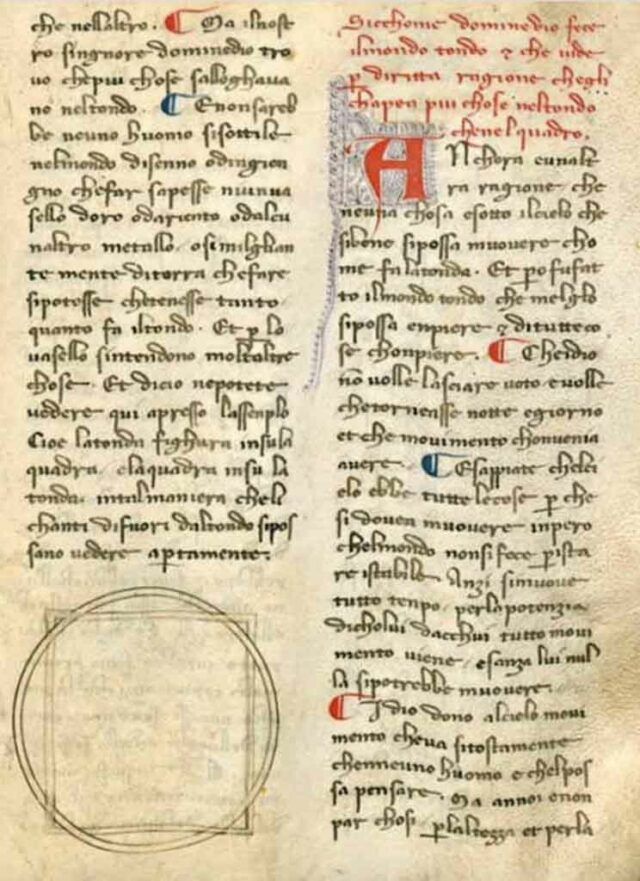 che nell altro. Ma il nost
ro singnore domınedio tro
vo che piu chose s alloghava
no nel tondo. E non sareb
be neuno huomo si sottile
nel mondo di senno o d ingien
gno che far sapesse niuna va
sello d oro o d ariento o d alcu
n altro metallo. o simigliian
te mente di terra che fare
si potesse che tenesse tanto
quanto fa il tondo. Et p lo
vasello s intendono molt altre
chose. Et di cio ne potete
vedere qui apresso l assenplo
Cioe la tonda fighura in su la
quadra. e la quadra in su la
tonda. in tal maniera che li
chanti di fuori dal tondo si pos
sano vedere aptamente.
Sicchome domınedio fece
il mondo tondo & che vide
p diritta ragione che gli
chapea piu chose nel tondo
che nel quadro.
ANchora e un alt
ra ragione che
neuna chosa e sotto il cielo che
si bene si possa muovere cho
me fa la tonda. Et po fu fat
to il mondo tondo che meglo
si possa enpiere & di tutte co
se chonpiere. Che idio
nō volle lasciare voto e volle
che tornasse notte e giorno
et che movimento chonvenia
avere. E sappiate che l ci
elo ebbe tutte le cose p che
si dovea muovere inpero
che l mondo non si fece p ista
re istabile. Anzi si muove
tutto tenpo. per la potenzia
di cholui da cchui tutto movi
mento viene. e sanza lui nul
la si potrebbe muovere.
Idio dono al cielo movi
mento che va si tostamente
che nneuno huomo e che l pos
sa pensare. Ma a nnoi e non
par chosi. p la ltezza et per la